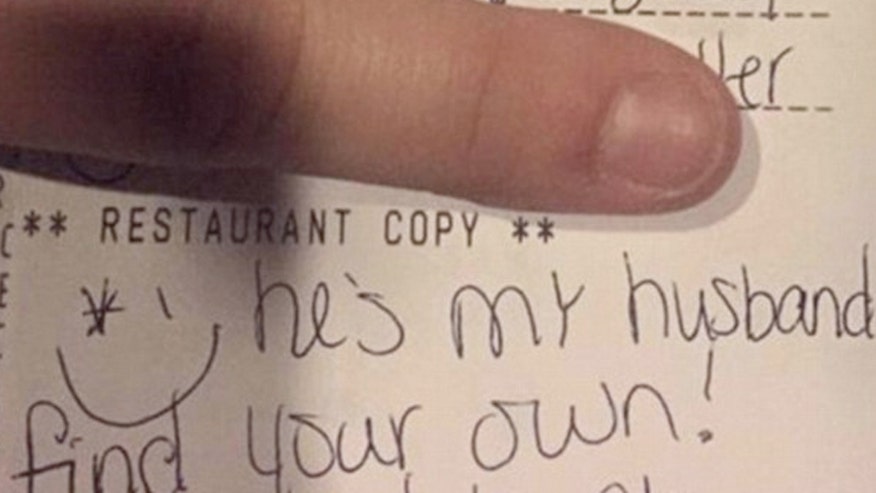 ** RESTAURANT COPY **
he's my husband
find your own!